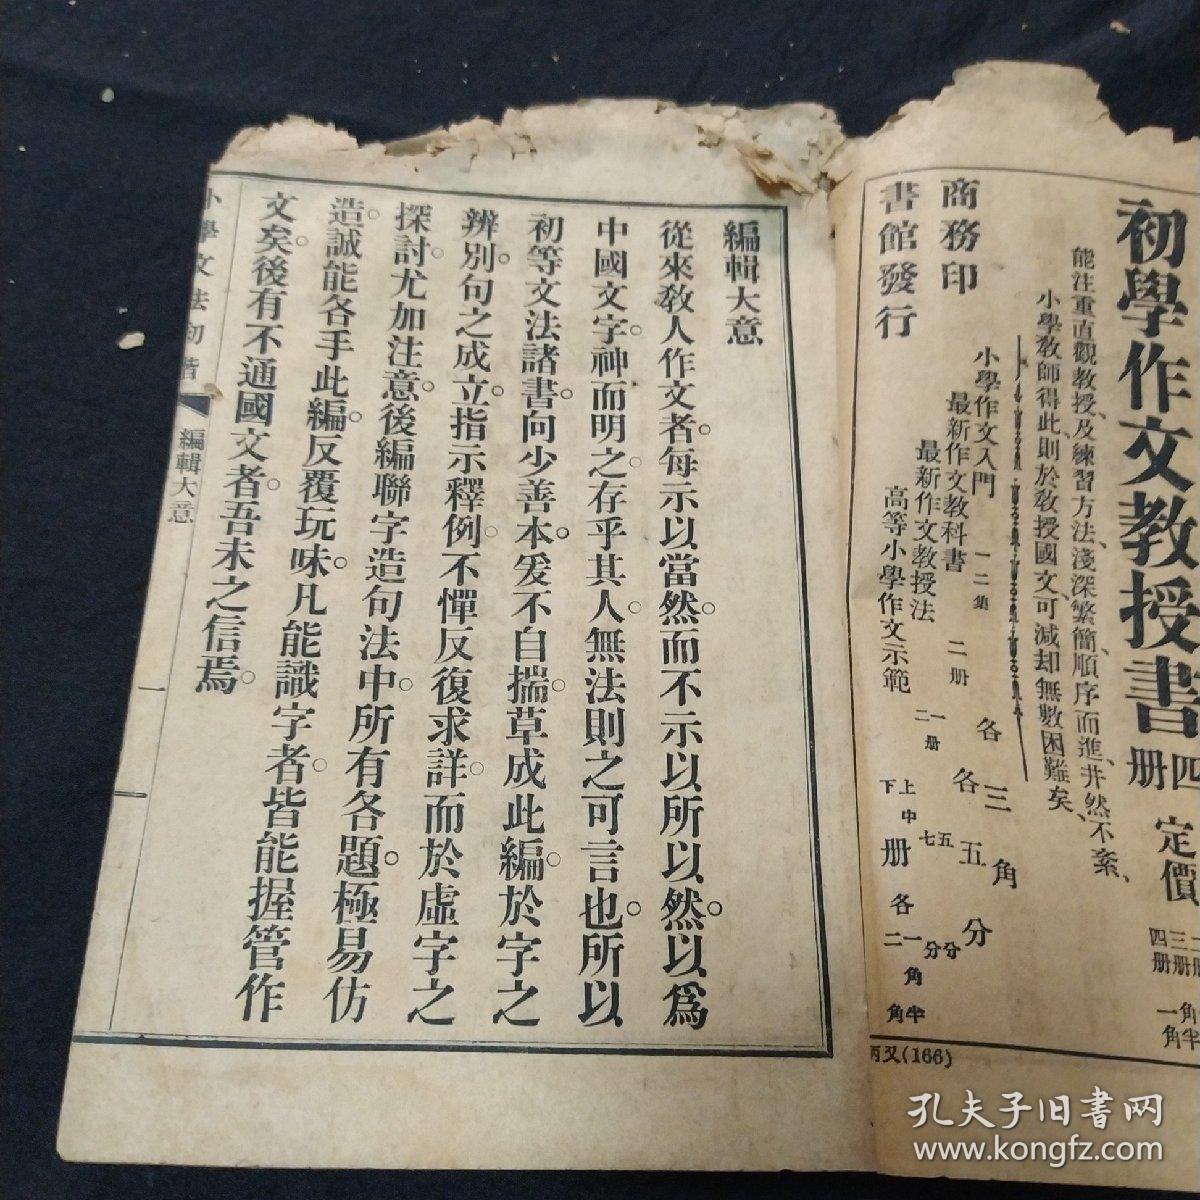 初學作文教授書
四冊
定價
三册
四册
角半
一角
能注重直觀教授、及練習方法、淺深、繁簡、順序而進、井然不紊、
小學教師得此、則於教授國文可減却無數困難矣、
小學作文入門 一二集 各三角
最新作文教科書 二册 各五分
最新作文教授法 一二册 五七分分
高等小學作文示範 上中下册各一角半二角
商務印
書館發行
丙又(166)
編輯大意
從來教人作文者。每示以當然。而不示以所以然。以爲
中國文字。神而明之。存乎其人。無法則之可言也。所以
初等文法諸書。向少善本。爰不自揣。草成此編。於字之
辨別。句之成立。指示釋例。不憚反復求詳。而於虛字之
探討。尤加注意。後編聯字造句法中。所有各題。極易仿
造。誠能各手此編。反覆玩味。凡能識字者。皆能握管作
文矣。後有不通國文者。吾未之信焉。
小學文法初階
編輯大意
一
孔夫子旧書网
www.kongfz.com